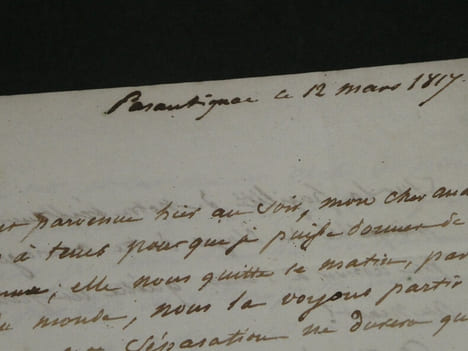 Parentignac ce 12 mars 1817.
parvenue hier au soir, mon cher
à tems pour que je puisse donner de
elle nous quitte ce matin, par
monde, nous la voyons partir
Séparation ne durera qu